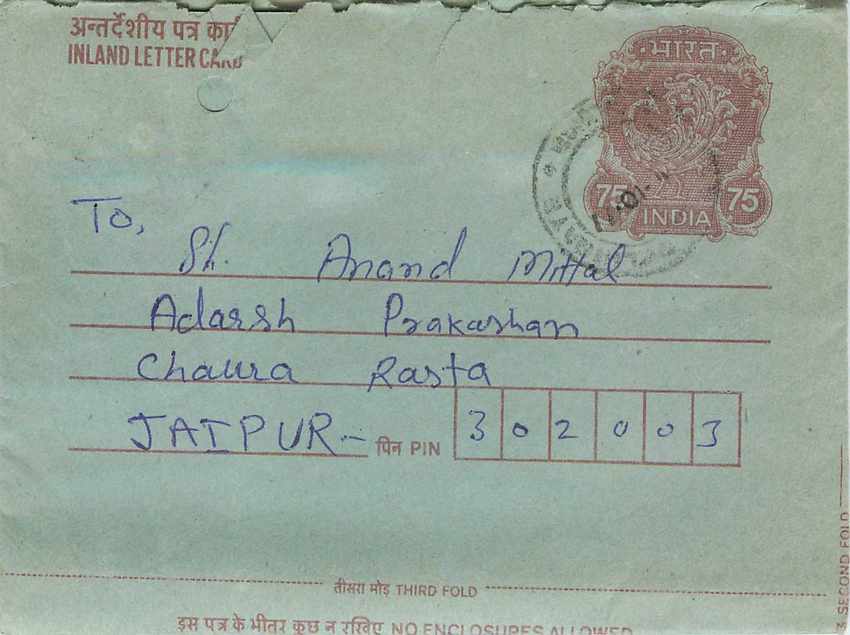 अन्तर्देशीय पत्र कार्ड
INLAND LETTER CARD
भारत
75 75
INDIA
To,
Sh. Anand Mittal
Adarsh Prakashan
Chaura Rasta
JAIPUR-
पिन PIN 3 0 2 0 0 3
तीसरा मोड़ THIRD FOLD
SECOND FOLD
इस पत्र के भीतर कुछ न रखिए NO ENCLOSURES ALLOWED